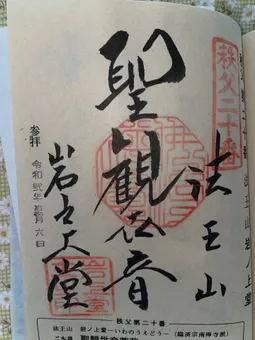 秩父二十番
法王山
聖観世音
岩之上堂
参拝
令和弐年 月六日
秩父第二十番
法王山 岩ノ上堂―いわのうえどう―(臨済宗南禅寺派)
聖観世音菩薩